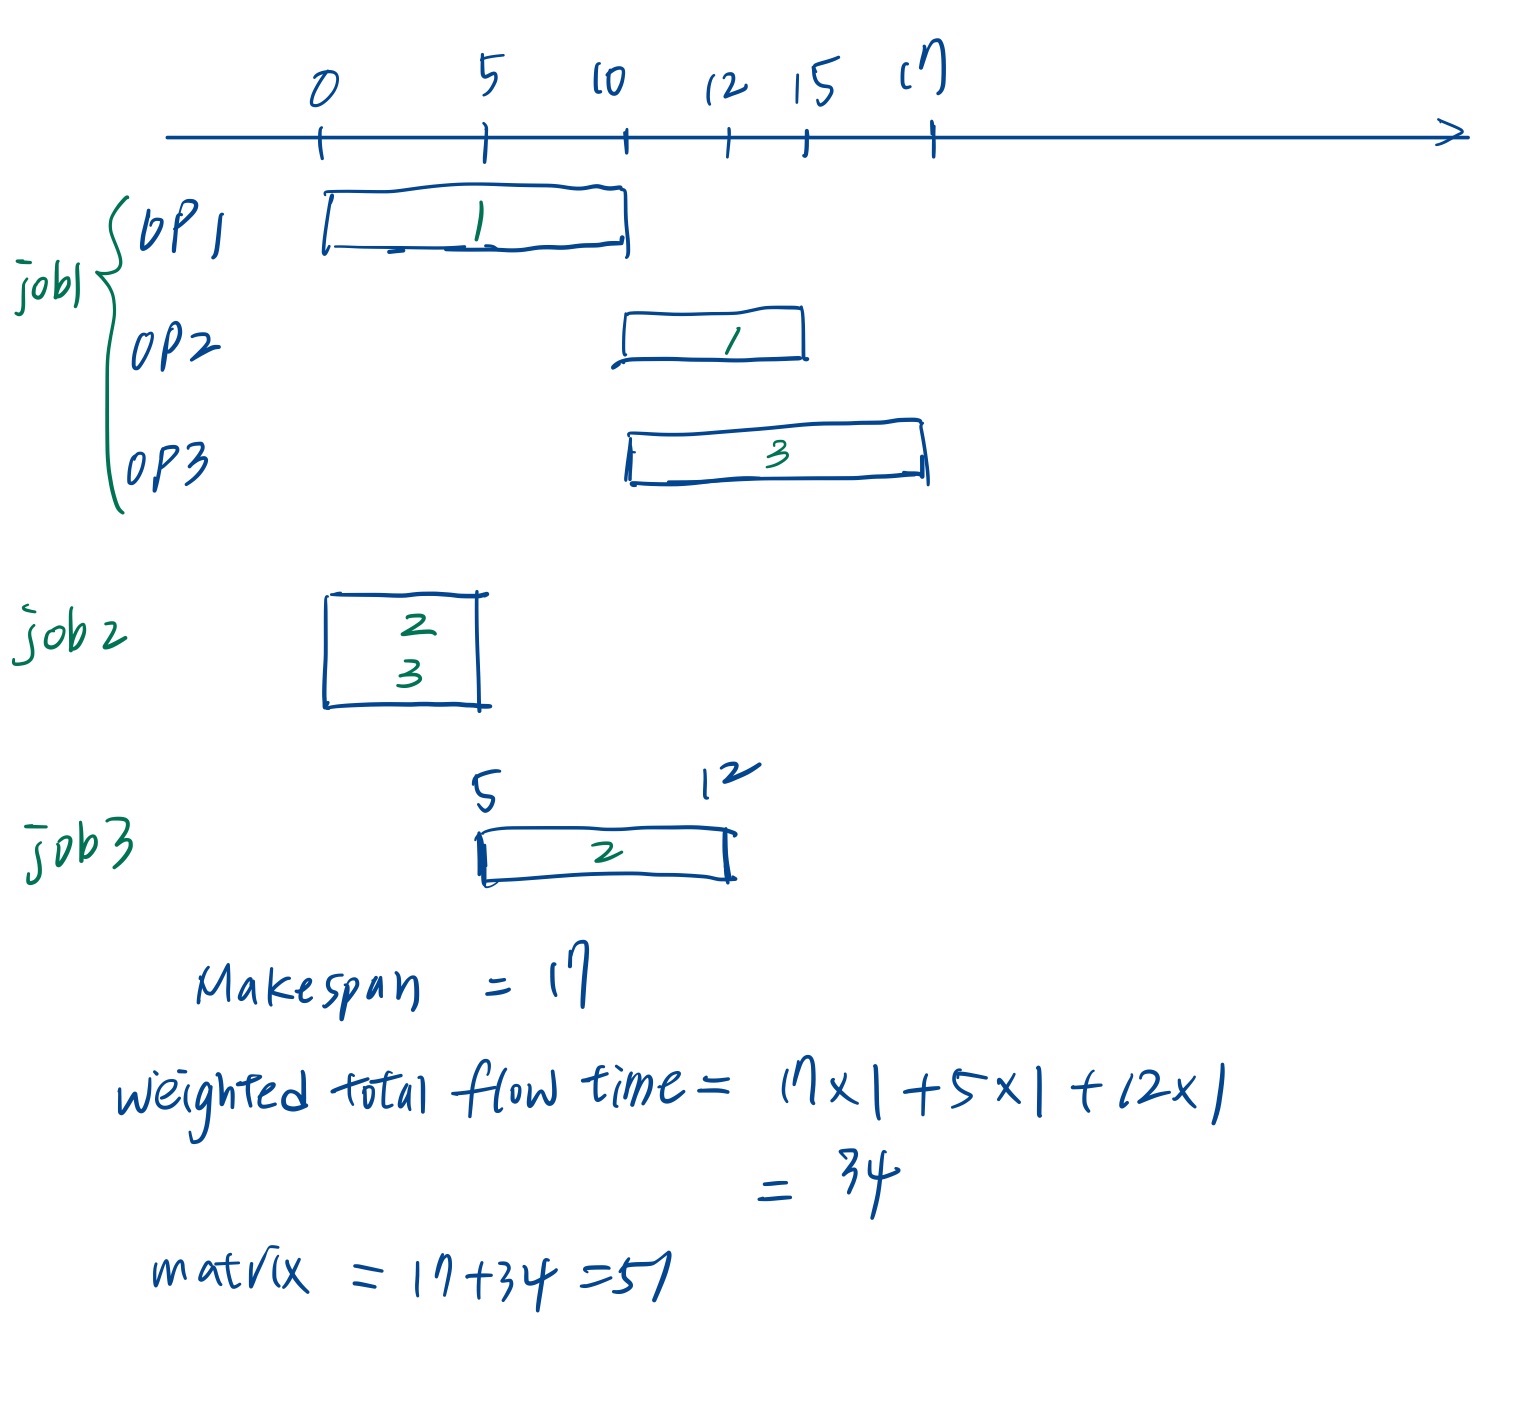 0 5 10 12 15 17
job1
OP1 1
OP2 1
OP3 3
job2
2
3
5 12
job3 2
Makespan = 17
weighted total flow time = 17x1+5x1+12x1
= 34
matrix = 17+34=51